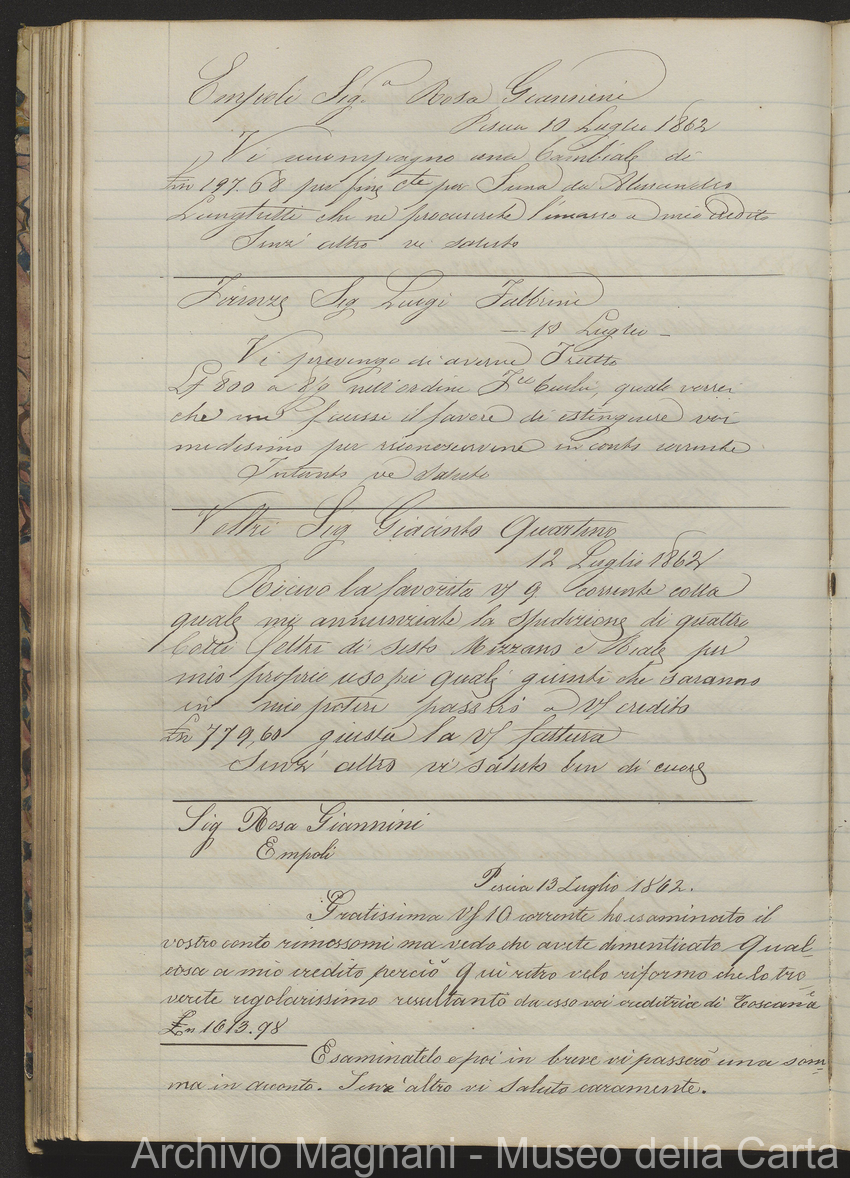 Empoli Sig.ª Rosa Giannini
Pescia 10 Luglio 1862
Vi accompagno una Cambiale di
£n 197.68 per fine cte per Siena da Alessandro
che ne procurerete l'incasso a mio credito
Senz' altro vi saluto
Firenze Sig Luigi Fabbrini
— 10 Luglio —
Vi prevengo di avervi Tratto
Lf 800 a 8/g nell'ordine quale vorrei
che mi facessi il favore di estinguere voi
medesimo per riconoscervene in conto corrente
Intanto ve saluto
Voltri Sig Giacinto Quartino
12 Luglio 1862
Ricevo la favorita Vf 9 corrente colla
quale mi annunziate la spedizione di quattro
Colli feltri di sesto Mezzano e Reale per
mio proprio uso pei quali giunti che saranno
in mio potere passerò a Vf credito
£n 779,60 giusta la Vf fattura
Senz' altro vi saluto ben di cuore
Sig Rosa Giannini
Empoli
Pescia 13 Luglio 1862.
Gratissima Vf 10 corrente ho esaminato il
vostro conto rimessomi ma vedo che avete dimenticato Qual-
cosa a mio credito perciò Qui retro velo riformo che lo tro-
verete regolarissimo resultanto da esso voi creditricia di Toscane
£n 1613.98
Esaminatelo e poi in breve vi passerò una som-
ma in acconto. Senz' altro vi saluto caramente.
Archivio Magnani - Museo della Carta